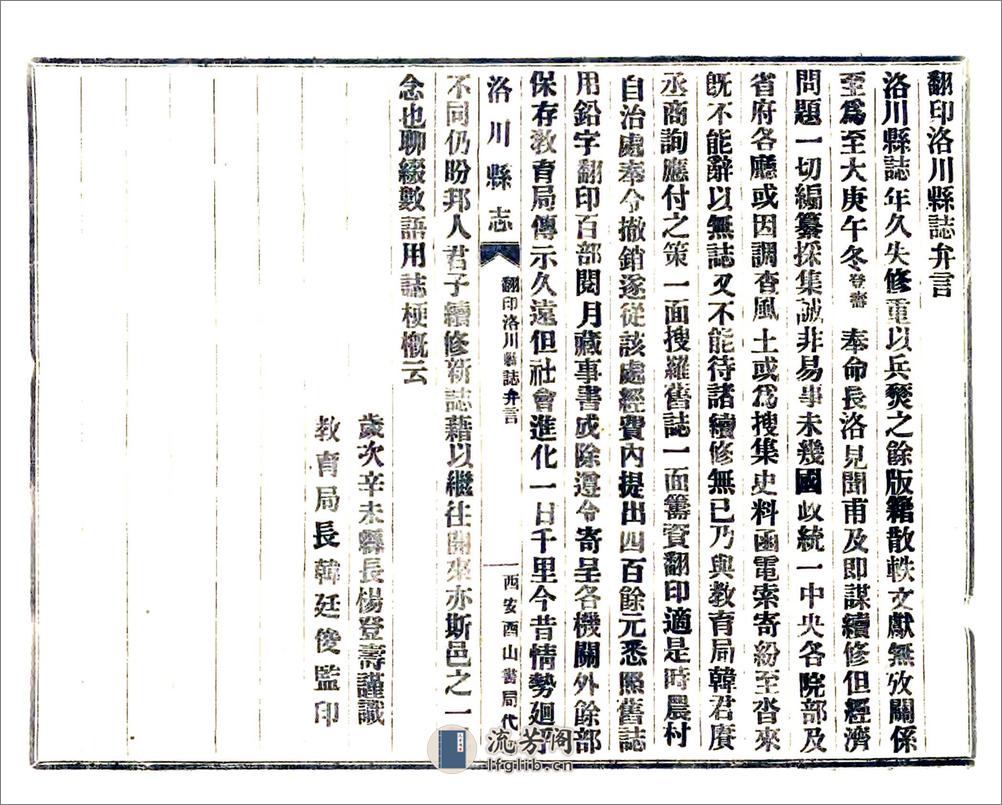 翻印洛川縣誌弁言
洛川縣誌年久失修重以兵燹之餘版籍散軼文獻無攷關係
至爲至大庚午冬登壽 奉命長洛見聞甫及即謀續修但經濟
問題一切編纂採集誠非易事未幾國政統一中央各院部及
省府各廳或因調查風土或爲搜集史料函電索寄紛至沓來
旣不能辭以無誌又不能待諸續修無已乃與教育局韓君賡
丞商詢應付之策一面搜羅舊誌一面籌資翻印適是時農村
自治處奉令撤銷遂從該處經費內提出四百餘元悉照舊誌
用鉛字翻印百部閱月蕆事書成除遵令寄呈各機關外餘部
保存教育局傳示久遠但社會進化一日千里今昔情勢廻乎
洛川縣志
翻印洛川縣誌弁言
一
西安酉山書局代
不同仍盼邦人君子續修新誌藉以繼往開來亦斯邑之一
念也聊綴數語用誌梗概云
歲次辛未縣長楊登壽謹識
教育局長韓廷俊監印
流芳閣
lfglib.cn